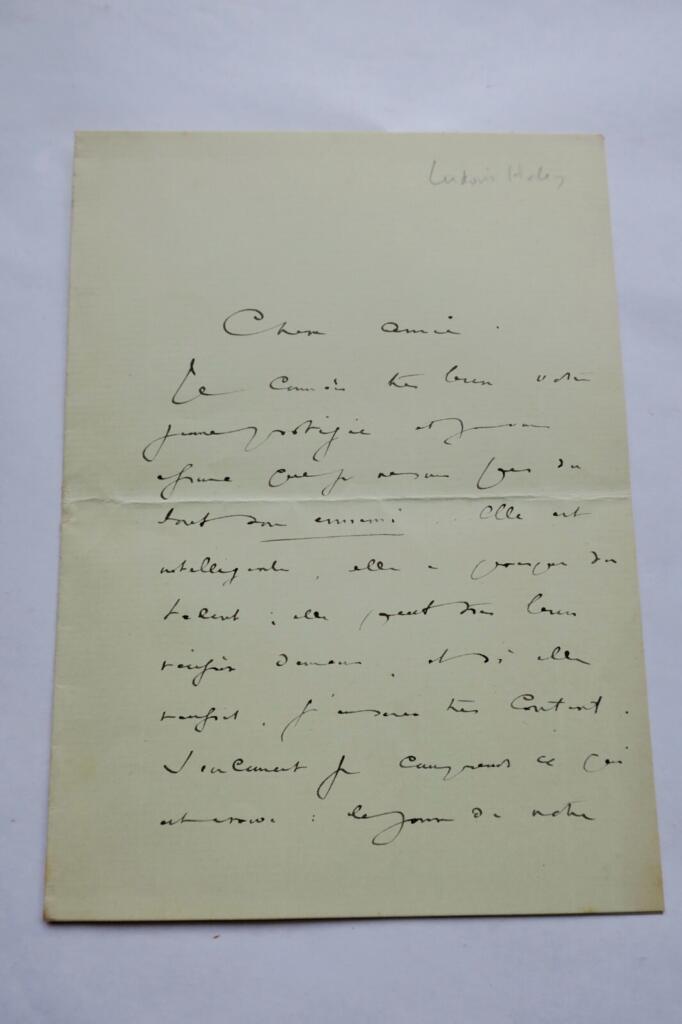 Ludovic Halévy
Chère amie.
Je connais très bien votre
jeune protégée et je vous
assure que je ne suis pas du
tout son ennemi. Elle est
intelligente, elle a presque du
talent ; elle peut très bien
réussir demain, et si elle
réussit, j'en serai très content.
Seulement je comprends ce qui
est arrivé : le jour de notre